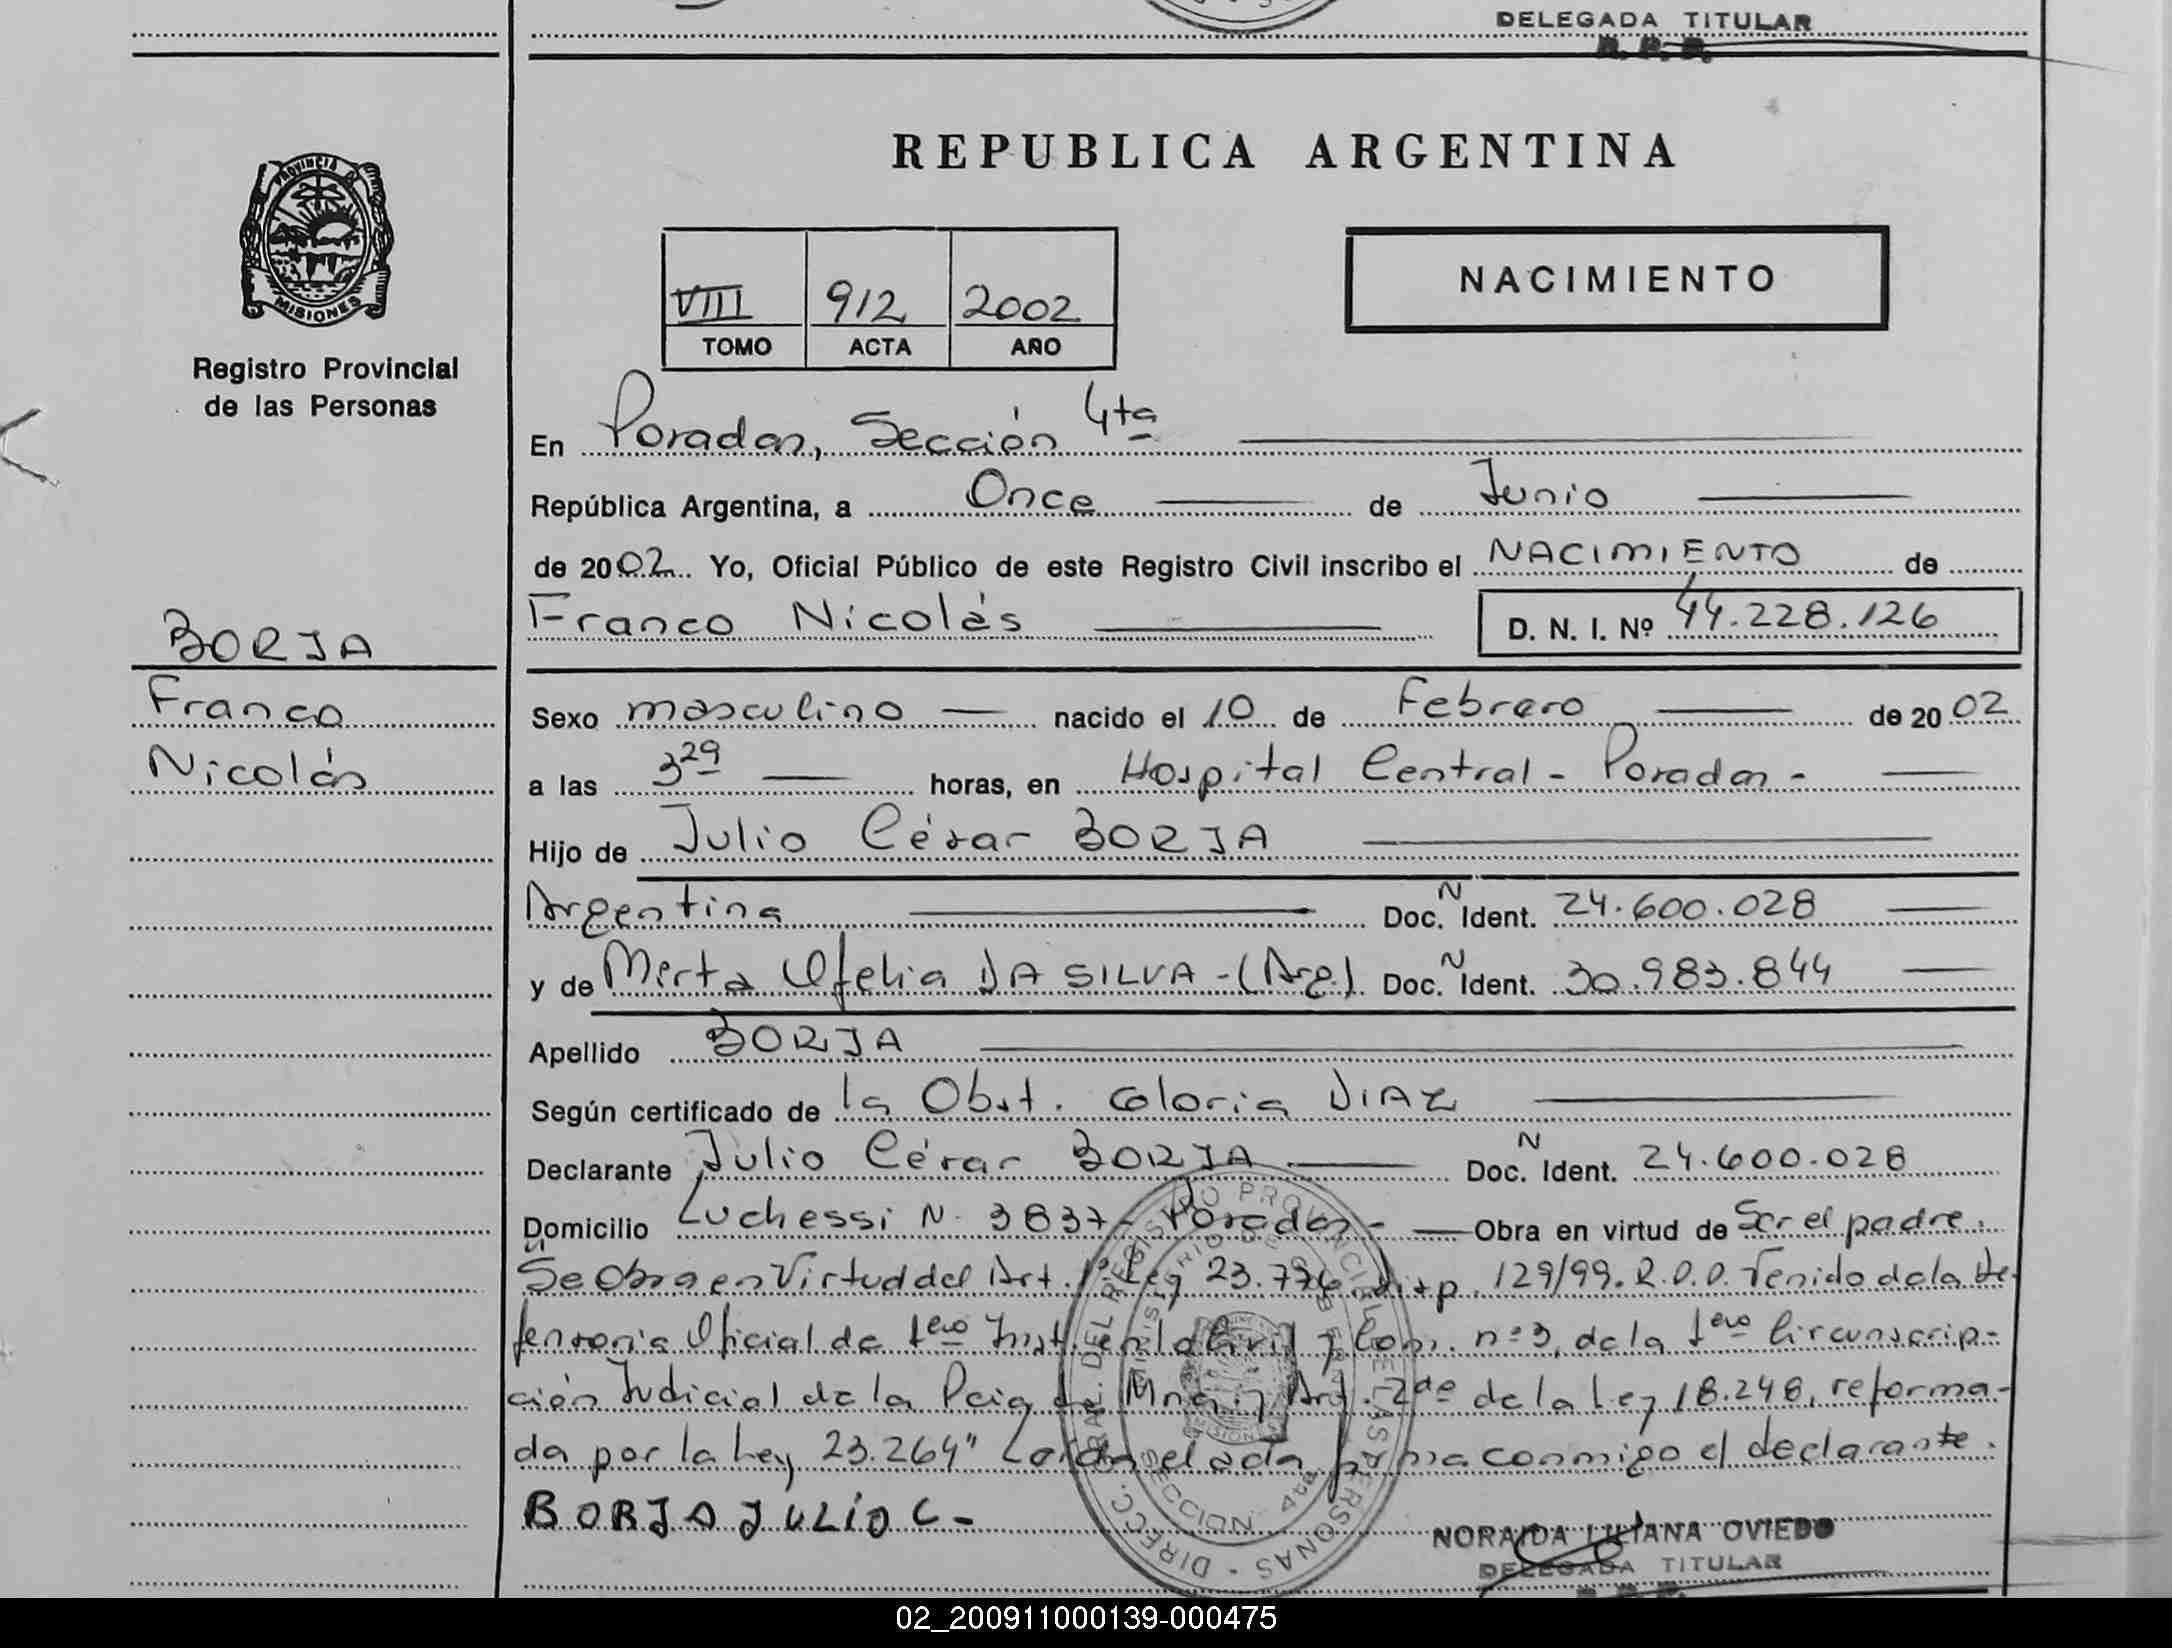 DELEGADA TITULAR
R. P. P.
REPUBLICA ARGENTINA
PROVINCIA DE
MISIONES
Registro Provincial
de las Personas
VIII 912 2002
TOMO ACTA AÑO
NACIMIENTO
En Posadas, Sección 4ta
República Argentina, a Once de Junio
de 2002. Yo, Oficial Público de este Registro Civil inscribo el NACIMIENTO de
Franco Nicolás D. N. I. Nº 44.228.126
BORJA
Franco
Nicolás
Sexo masculino nacido el 10 de Febrero de 2002
a las 3 29 horas, en Hospital Central - Posadas -
Hijo de Julio César BORJA
Argentina Doc. N Ident. 24.600.028
y de Mirta Ofelia DA SILVA - (Arg.) Doc. N Ident. 30.983.844
Apellido BORJA
Según certificado de la Obst. Gloria DIAZ
Declarante Julio César BORJA Doc. N Ident. 24.600.028
Domicilio Luchessi N. 3837 - Posadas - Obra en virtud de Ser el padre.
"Se Obra en Virtud del Art. 1º Ley 23.776 Disp. 129/99. R.P.P. Venido de la De-
fensoria Oficial de 1era Inst. en lo Civil y Com. nº 3, de la 1era Circunscrip-
ción Judicial de la Pcia de Mnes. y Art. 2do de la Ley 18.248, reforma-
da por la Ley 23.264" Leída el acta firma conmigo el declarante.
BORJA JULIO C-
DIRECC. GRAL. DEL REGISTRO PROVINCIAL DE LAS PERSONAS
MINISTERIO DE GOBIERNO
SECCION 4ta
NORAIDA LILIANA OVIEDO
DELEGADA TITULAR
02_200911000139-000475